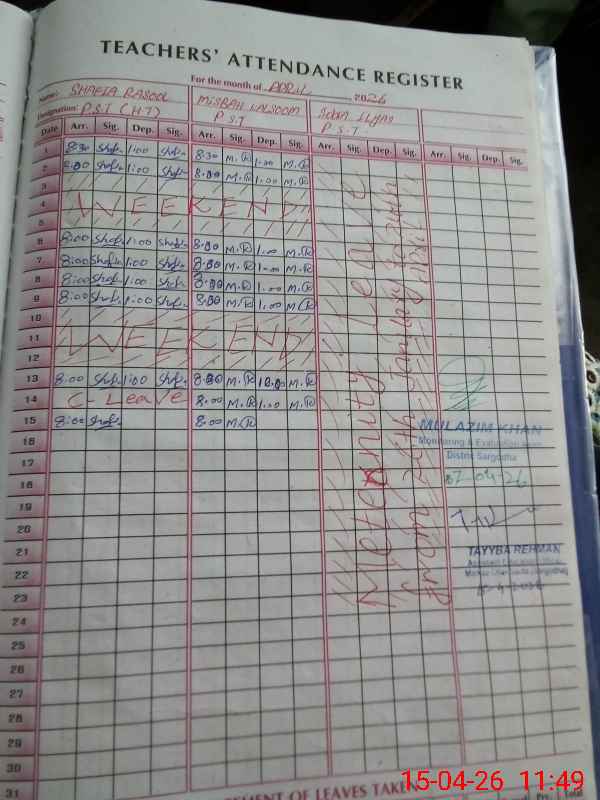 TEACHERS' ATTENDANCE REGISTER
For the month of APRIL 2026
Name: SHAFIA RASOOL MISBAH KALSOOM
Designation: P.S.T (H.T) P.S.T P.S.T
Date Arr. Sig. Dep. Sig. Arr. Sig. Dep. Sig. Arr. Sig. Dep. Sig. Arr. Sig. Dep. Sig.
1 8:30 Shafia 1:00 Shafia 8:30 M.K 1:00 M.K
2 8:00 Shafia 1:00 Shafia 8:00 M.K 1:00 M.K
3
4 WEEKEND
5
6 8:00 Shafia 1:00 Shafia 8:00 M.K 1:00 M.K
7 8:00 Shafia 1:00 Shafia 8:00 M.K 1:00 M.K
8 8:00 Shafia 1:00 Shafia 8:00 M.K 1:00 M.K
9 8:00 Shafia 1:00 Shafia 8:00 M.K 1:00 M.K
10
11 WEEKEND
12
13 8:00 Shafia 1:00 Shafia 8:00 M.K M.K
14 C-Leave 8:00 M.K 1:00 M.K
15 8:00 Shafia 8:00 M.K
16
17
18
19
20
21
22
23
24
25
26
27
28
29
30
31
Leave
MULAZIM KHAN
Monitoring & Evaluation
District Sargodha
07-04-26
TAYYBA REHMAN
OF LEAVES TAKEN
Total
15-04-26 11:49